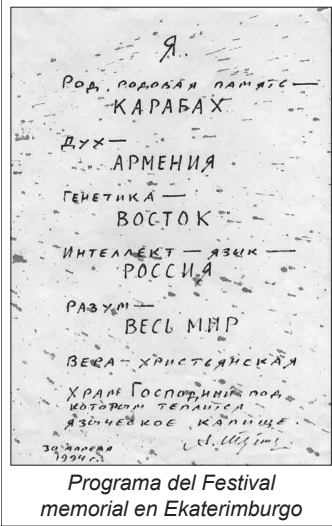 Я...
Род, родовая память —
КАРАБАХ
Дух —
АРМЕНИЯ
ГЕНЕТИКА —
ВОСТОК
Интеллект — язык —
РОССИЯ
Разум —
ВЕСЬ МИР
ВЕРА — христьянская
Храм Господний под
которым теплится
языческое капище.
30 апреля
1994 г.
Programa del Festival
memorial en Ekaterimburgo